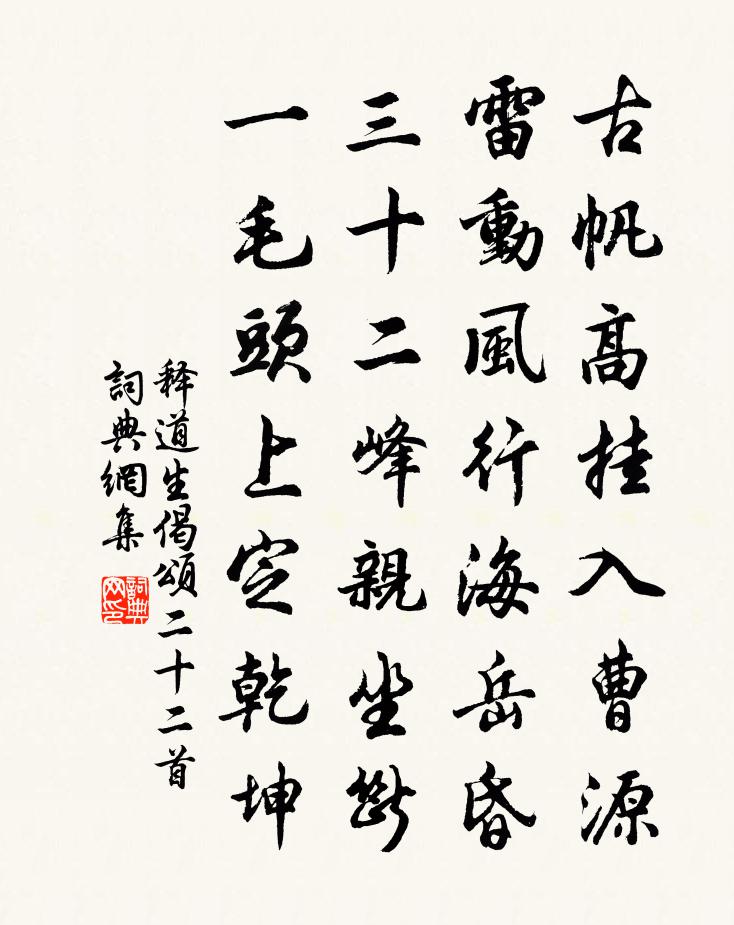 古帆高挂入曹源
雷動風行海岳昏
三十二峰親坐斷
一毛頭上定乾坤
释道生偈頌二十二首
詞典網集
詞典網印